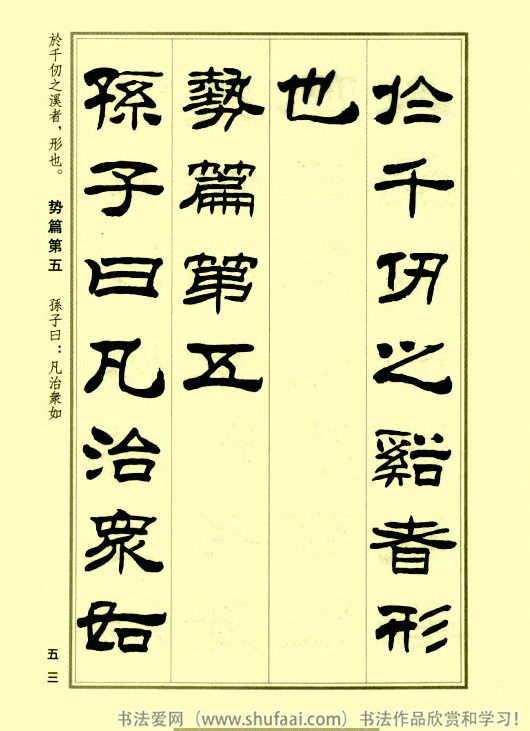 於千仞之谿者形
也
勢篇第五
孫子曰凡治衆如
於千仞之溪者，形也。 势篇第五 孫子曰：凡治衆如
五三
书法爱网（www.shufaai.com）书法作品欣赏和学习！